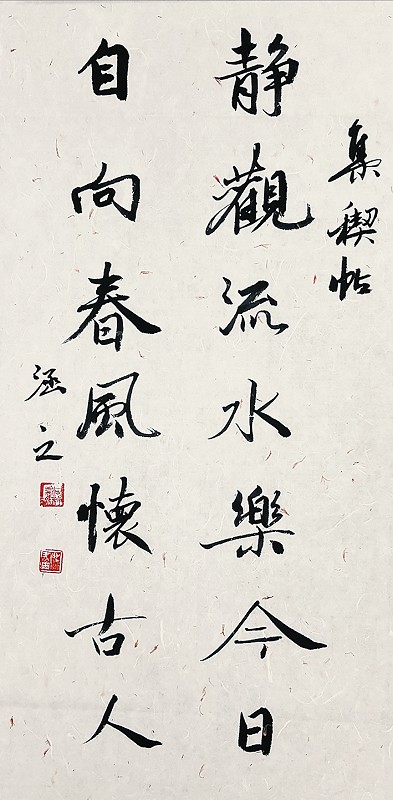 集稧帖
静觀流水樂今日
自向春風懷古人
涵之